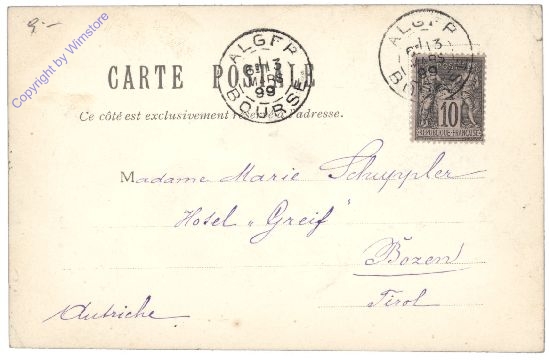 9.-
Copyright by Wimstore
CARTE POSTALE
Ce côté est exclusivement réservé à l'adresse.
ALGER
BOURSE
13
MARS
99
ALGER
13
MARS
99
BOURSE
10
REPUBLIQUE FRANÇAISE
Madame Marie Schuppler
Hotel „Greif"
Bozen
Tirol
Autriche